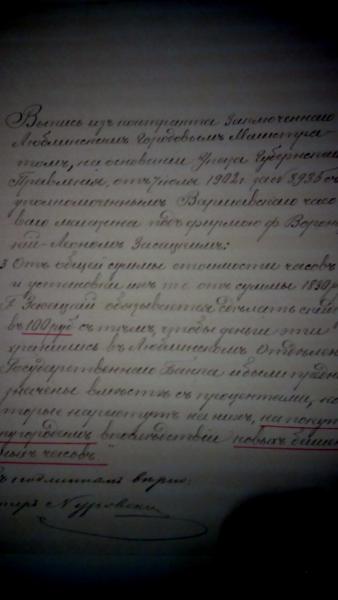 Выпись изъ контракта заключеннаго
Люблинскимъ Городовымъ Магистра-
томъ, на основаніи Указа Губернска
Правленія, отъ 7 іюля 1902 г. за № 3935 съ
уполномоченнымъ Варшавскаго часо
ваго магазина подъ фирмою Ф. Ворон
кій Леономъ Засацкимъ:
3 Отъ общей суммы стоимости часовъ
и установки ихъ т. е. отъ суммы 1830 р
Г. обязывается сдѣлать
въ 100 руб съ тѣмъ, чтобы деньги эти
хранились въ Люблинскомъ Отдѣлен
Государственнаго Банка и были
значены вмѣстѣ съ процентами, ко
торые наростутъ на нихъ, на
впослѣдствіи новыхъ башен
ныхъ часовъ.
съ подлиннымъ вѣрно: